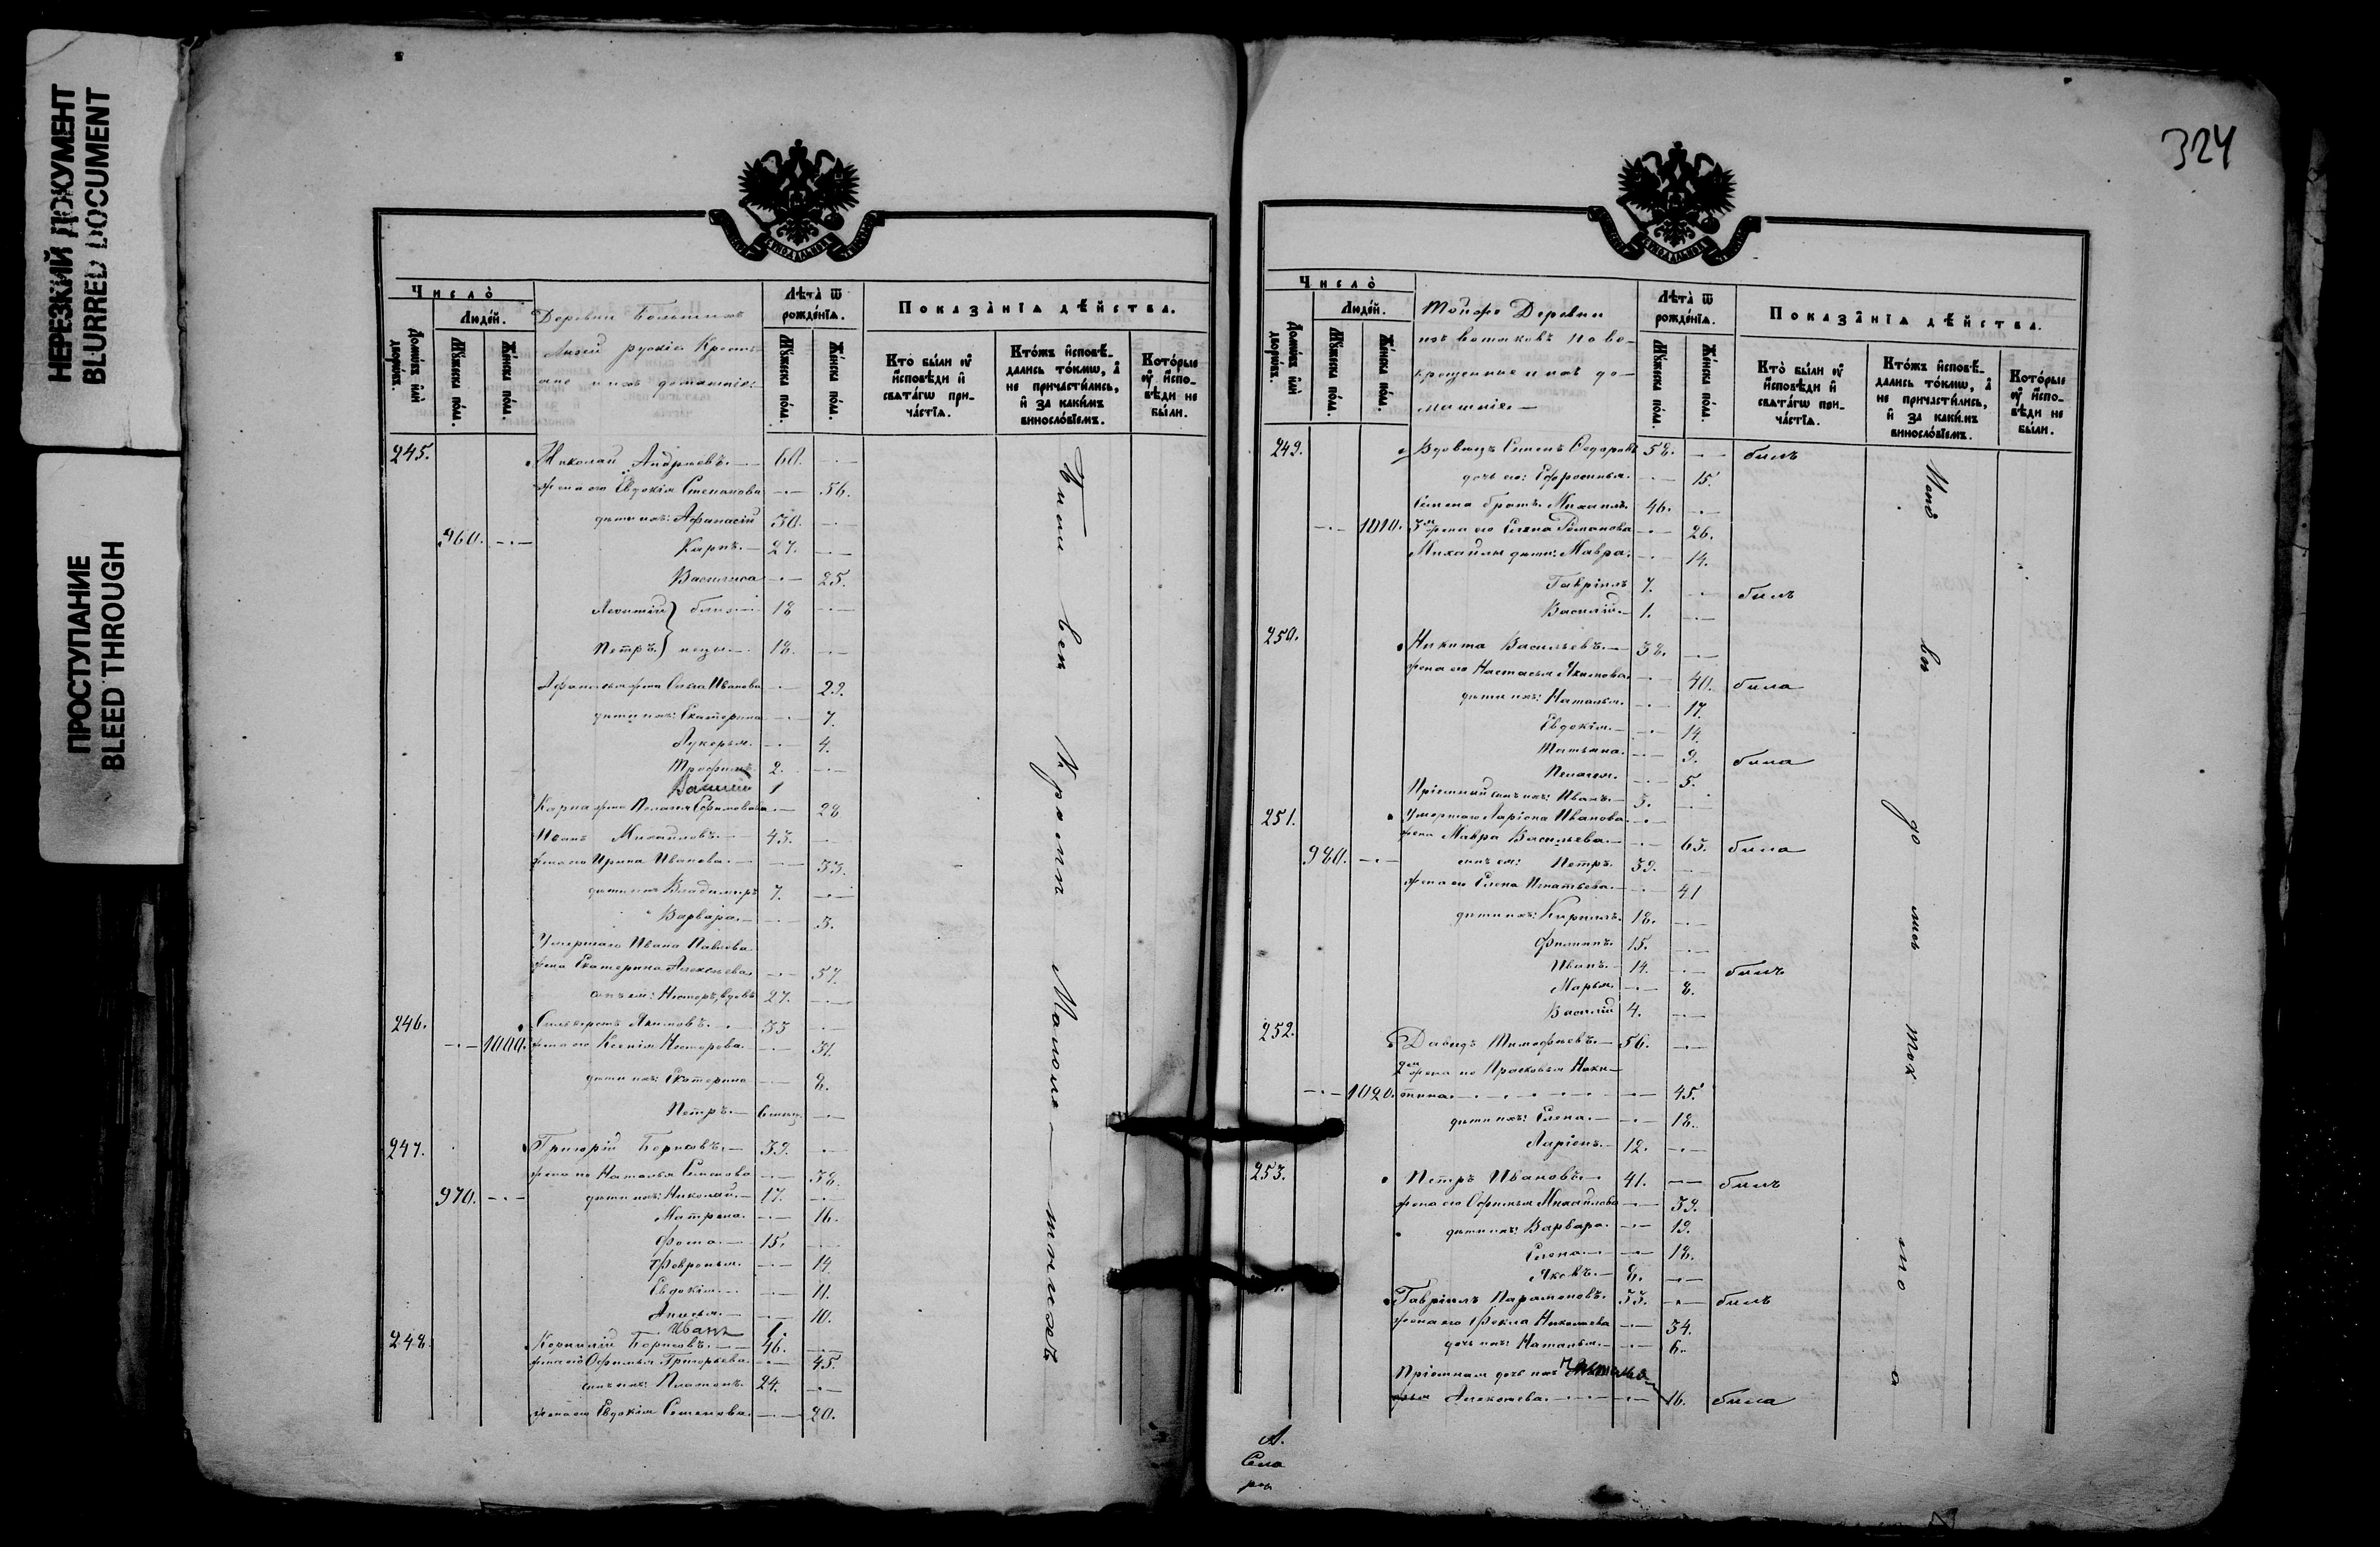 НЕРЕЗКИЙ ДОКУМЕНТ
BLURRED DOCUMENT
ПРОСТУПАНИЕ
BLEED THROUGH
Число̀
Людей.
Домѡвъ или дворѡвъ.
Мꙋжеска пола.
Женска пола.
Деревни
русские Кресть-
яне и ихъ домашніе:
Лѣта̀ ѿ рожденїѧ.
Мꙋжеска пола.
Женска пола.
Показа̀нїѧ дѣйства.
Кто̀ были ᲂу҆ и҆сповѣди и҆ свѧта́гѡ при-ча́стїѧ.
Кто́жъ и҆сповѣ-дались то́кмѡ, а҆ не причасти́лись, и҆ за каки́мъ винослѡвїемъ.
Кото́рые ᲂу҆ и҆спо-вѣди не бы́ли.
245. Николай Андреевъ. 60.
жена его Евдокія Степанова 56.
дѣти ихъ: Афанасій 30.
960. Карпъ. 27.
Василиса 25.
Леонтій } близ- 18
Петръ. } нецы 18.
Афанасья жена Ольга Иванова 29.
дѣти ихъ: Екатерина 7.
Лукерья. 4.
Трофимъ. 2.
Василій 1
Карпа жена Пелагія Ефимовова 28
Иванъ Михайловъ. 43.
жена его Ирина Иванова. 33.
дѣти ихъ Владимиръ 7.
Варвара. 3.
Умершаго Ивана Павлова
жена Екатерина Алексѣева. 57.
сынъ ея: Несторъ, вдовъ 27.
246. Сильверстъ Акимовъ. 33
1000. жена его Ксенія Несторова. 31.
дѣти ихъ: Екатерина 8.
Петръ. 6 мѣсц.
247. Григорій Борисовъ. 39.
жена его Наталья Семенова 38.
970. дѣти ихъ: Николай. 17.
Матрена. 16.
Фома. 15.
Февронья. 14
Евдокія. 11.
Анисья. 10.
Иванъ 1.
248. Корнилій Борисовъ. 46.
жена его Офимья Григорьева. 45.
сынъ ихъ: Платонъ. 24.
жена его Евдокія Семенова. 20.
вси Кромѣ Малолѣтнихъ
324
Число̀
Людей.
Домѡвъ или дворѡвъ.
Мꙋжеска пола.
Женска пола.
Тойже Деревни
изъ вотяковъ ново-
крещенные и ихъ до-
машніе.
Лѣта̀ ѿ рожденїѧ.
Мꙋжеска пола.
Женска пола.
Показа̀нїѧ дѣйства.
Кто̀ были ᲂу҆ и҆сповѣди и҆ свѧта́гѡ при-ча́стїѧ.
Кто́жъ и҆сповѣ-дались то́кмѡ, а҆ не причасти́лись, и҆ за каки́мъ винослѡвїемъ.
Кото́рые ᲂу҆ и҆спо-вѣди не бы́ли.
249. Вдовецъ Семенъ Федоровъ 58. былъ
дочь его: Ефросинья. 15.
Семена братъ Михаилъ. 46.
1010. 3я жена его Елена Романова 26.
Михайлы дѣти: Мавра. 14.
Гавріилъ 7. былъ
Василій. 1.
250. Никита Васильевъ. 38.
жена его Настасья Акимова. 40. была
дѣти ихъ: Наталья. 17.
Евдокія. 14.
Татьяна. 9. была
Пелагея. 5.
Пріемный сынъ ихъ: Иванъ. 3.
251. Умершаго Ларіона Иванова
жена Мавра Васильева. 65. была
980. сынъ ея: Петръ. 39.
жена его Елена Игнатьева. 41
дѣти ихъ: Кирилъ. 18.
Филипъ. 15.
Иванъ. 14. былъ
Марья. 8.
Василій 4.
252. Давидъ Тимофѣевъ. 56.
2я жена его Прасковья Ники-
1020. тина. 45.
дѣти ихъ: Елена. 18.
Ларіонъ. 12.
253. Петръ Ивановъ. 41. былъ
жена его Офимья Михайлова 39.
дѣти ихъ: Варвара. 19.
Елена. 18.
Яковъ. 8.
Гавріилъ Парамоновъ. 33. былъ
жена его Фекла Николаева 34.
дочь ихъ: Наталья. 6.
Пріемная дочь ихъ
Алексѣева. 16. была
А.
Села